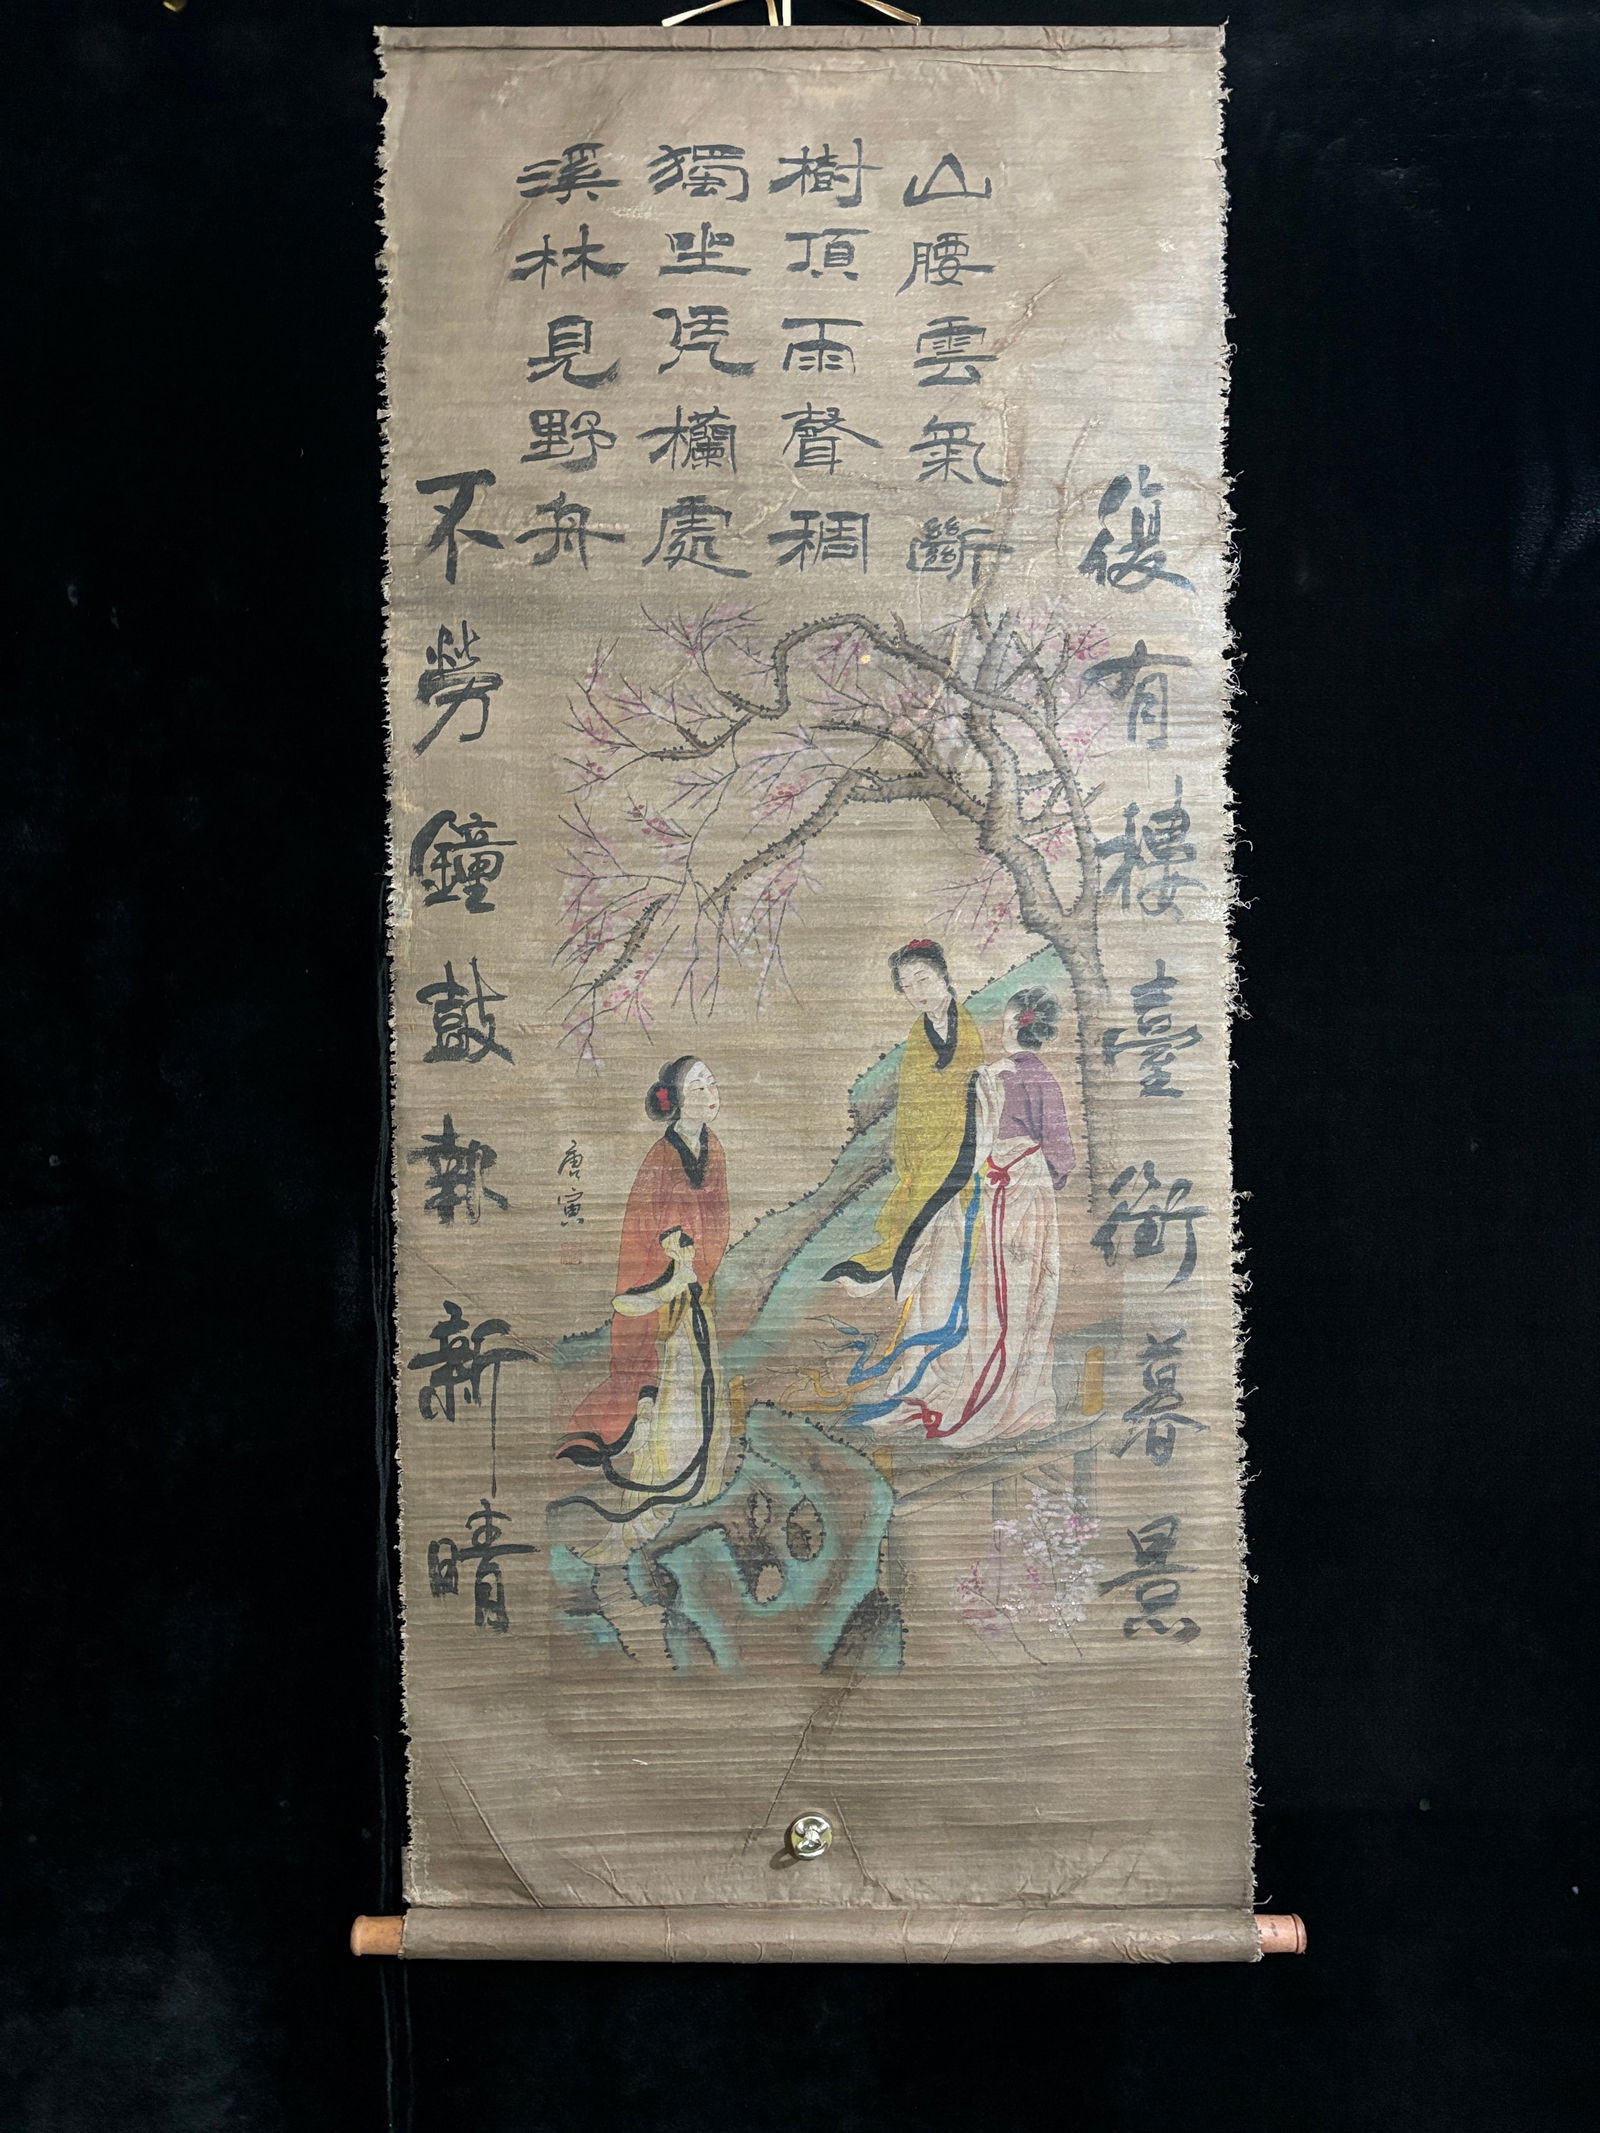 山腰雲氣斷
樹頂雨聲稠
獨坐凭欄處
溪林見野舟
復有樓臺銜暮景
不勞鐘鼓報新晴
唐寅